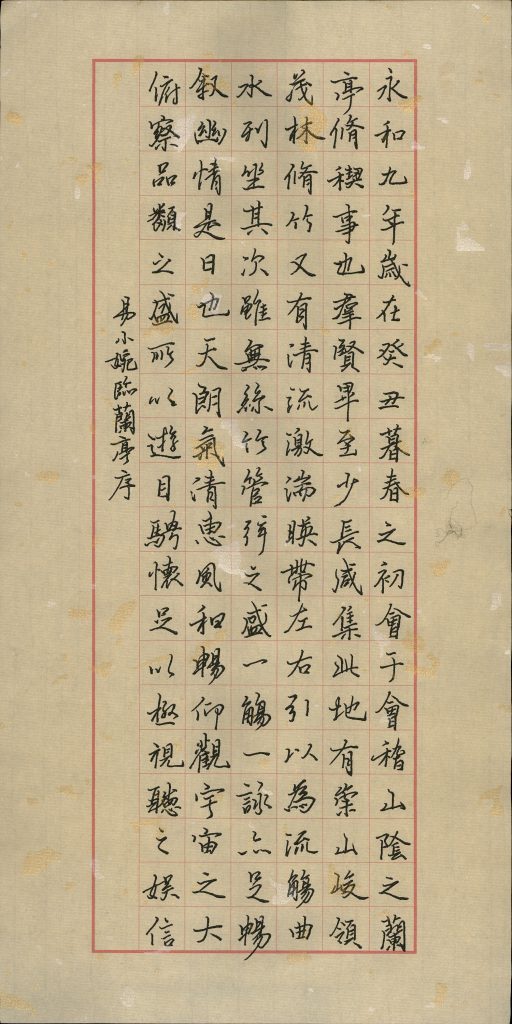 永和九年歲在癸丑暮春之初會于會稽山陰之蘭
亭脩稧事也羣賢畢至少長咸集此地有崇山峻領
茂林脩竹又有清流激湍暎帶左右引以為流觴曲
水列坐其次雖無絲竹管弦之盛一觴一詠亦足暢
叙幽情是日也天朗氣清惠風和暢仰觀宇宙之大
俯察品類之盛所以遊目騁懷足以極視聽之娛信
易小婉臨蘭亭序